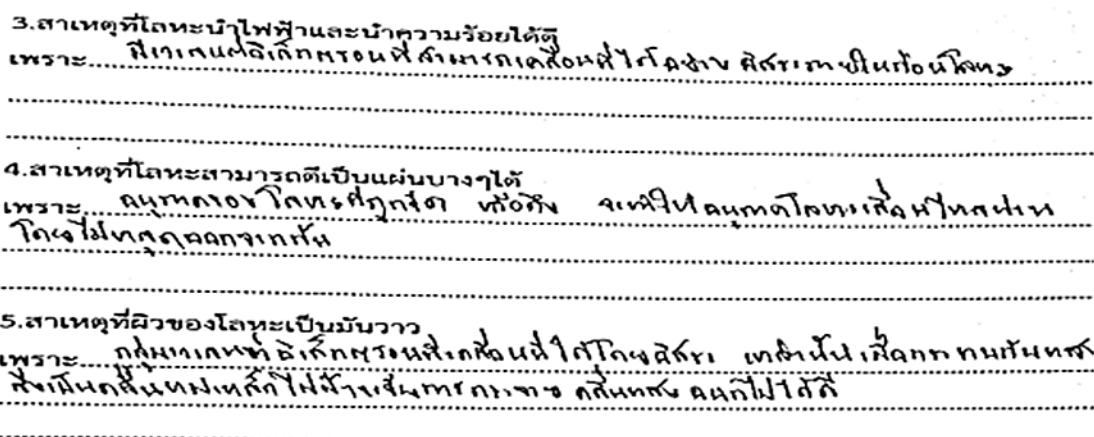 3.สาเหตุที่โลหะนำไฟฟ้าและนำความร้อยได้ดี
เพราะ มีเวเลนต์อิเล็กตรอนที่สามารถเคลื่อนที่ได้อย่างอิสระภายในก้อนโลหะ
4.สาเหตุที่โลหะสามารถตีเป็นแผ่นบางๆได้
เพราะ อนุภาคของโลหะที่ถูกรีด หรือดึง จะทำให้อนุภาคโลหะเลื่อนไหลผ่าน
โดยไม่หลุดออกจากกัน
5.สาเหตุที่ผิวของโลหะเป็นมันวาว
เพราะ กลุ่มเวเลนซ์อิเล็กตรอนที่เคลื่อนที่ได้โดยอิสระ เหล่านั้น เมื่อกระทบกับแสง
ซึ่งเป็นคลื่นแม่เหล็กไฟฟ้า การกระจาย คลื่นแสง ออกไปได้ดี